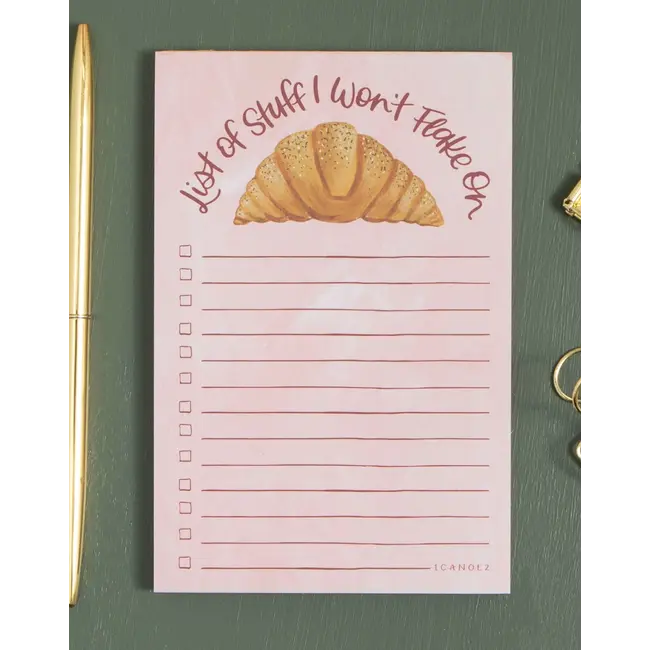 List of Stuff I Won't Flake On
ICANDEZ